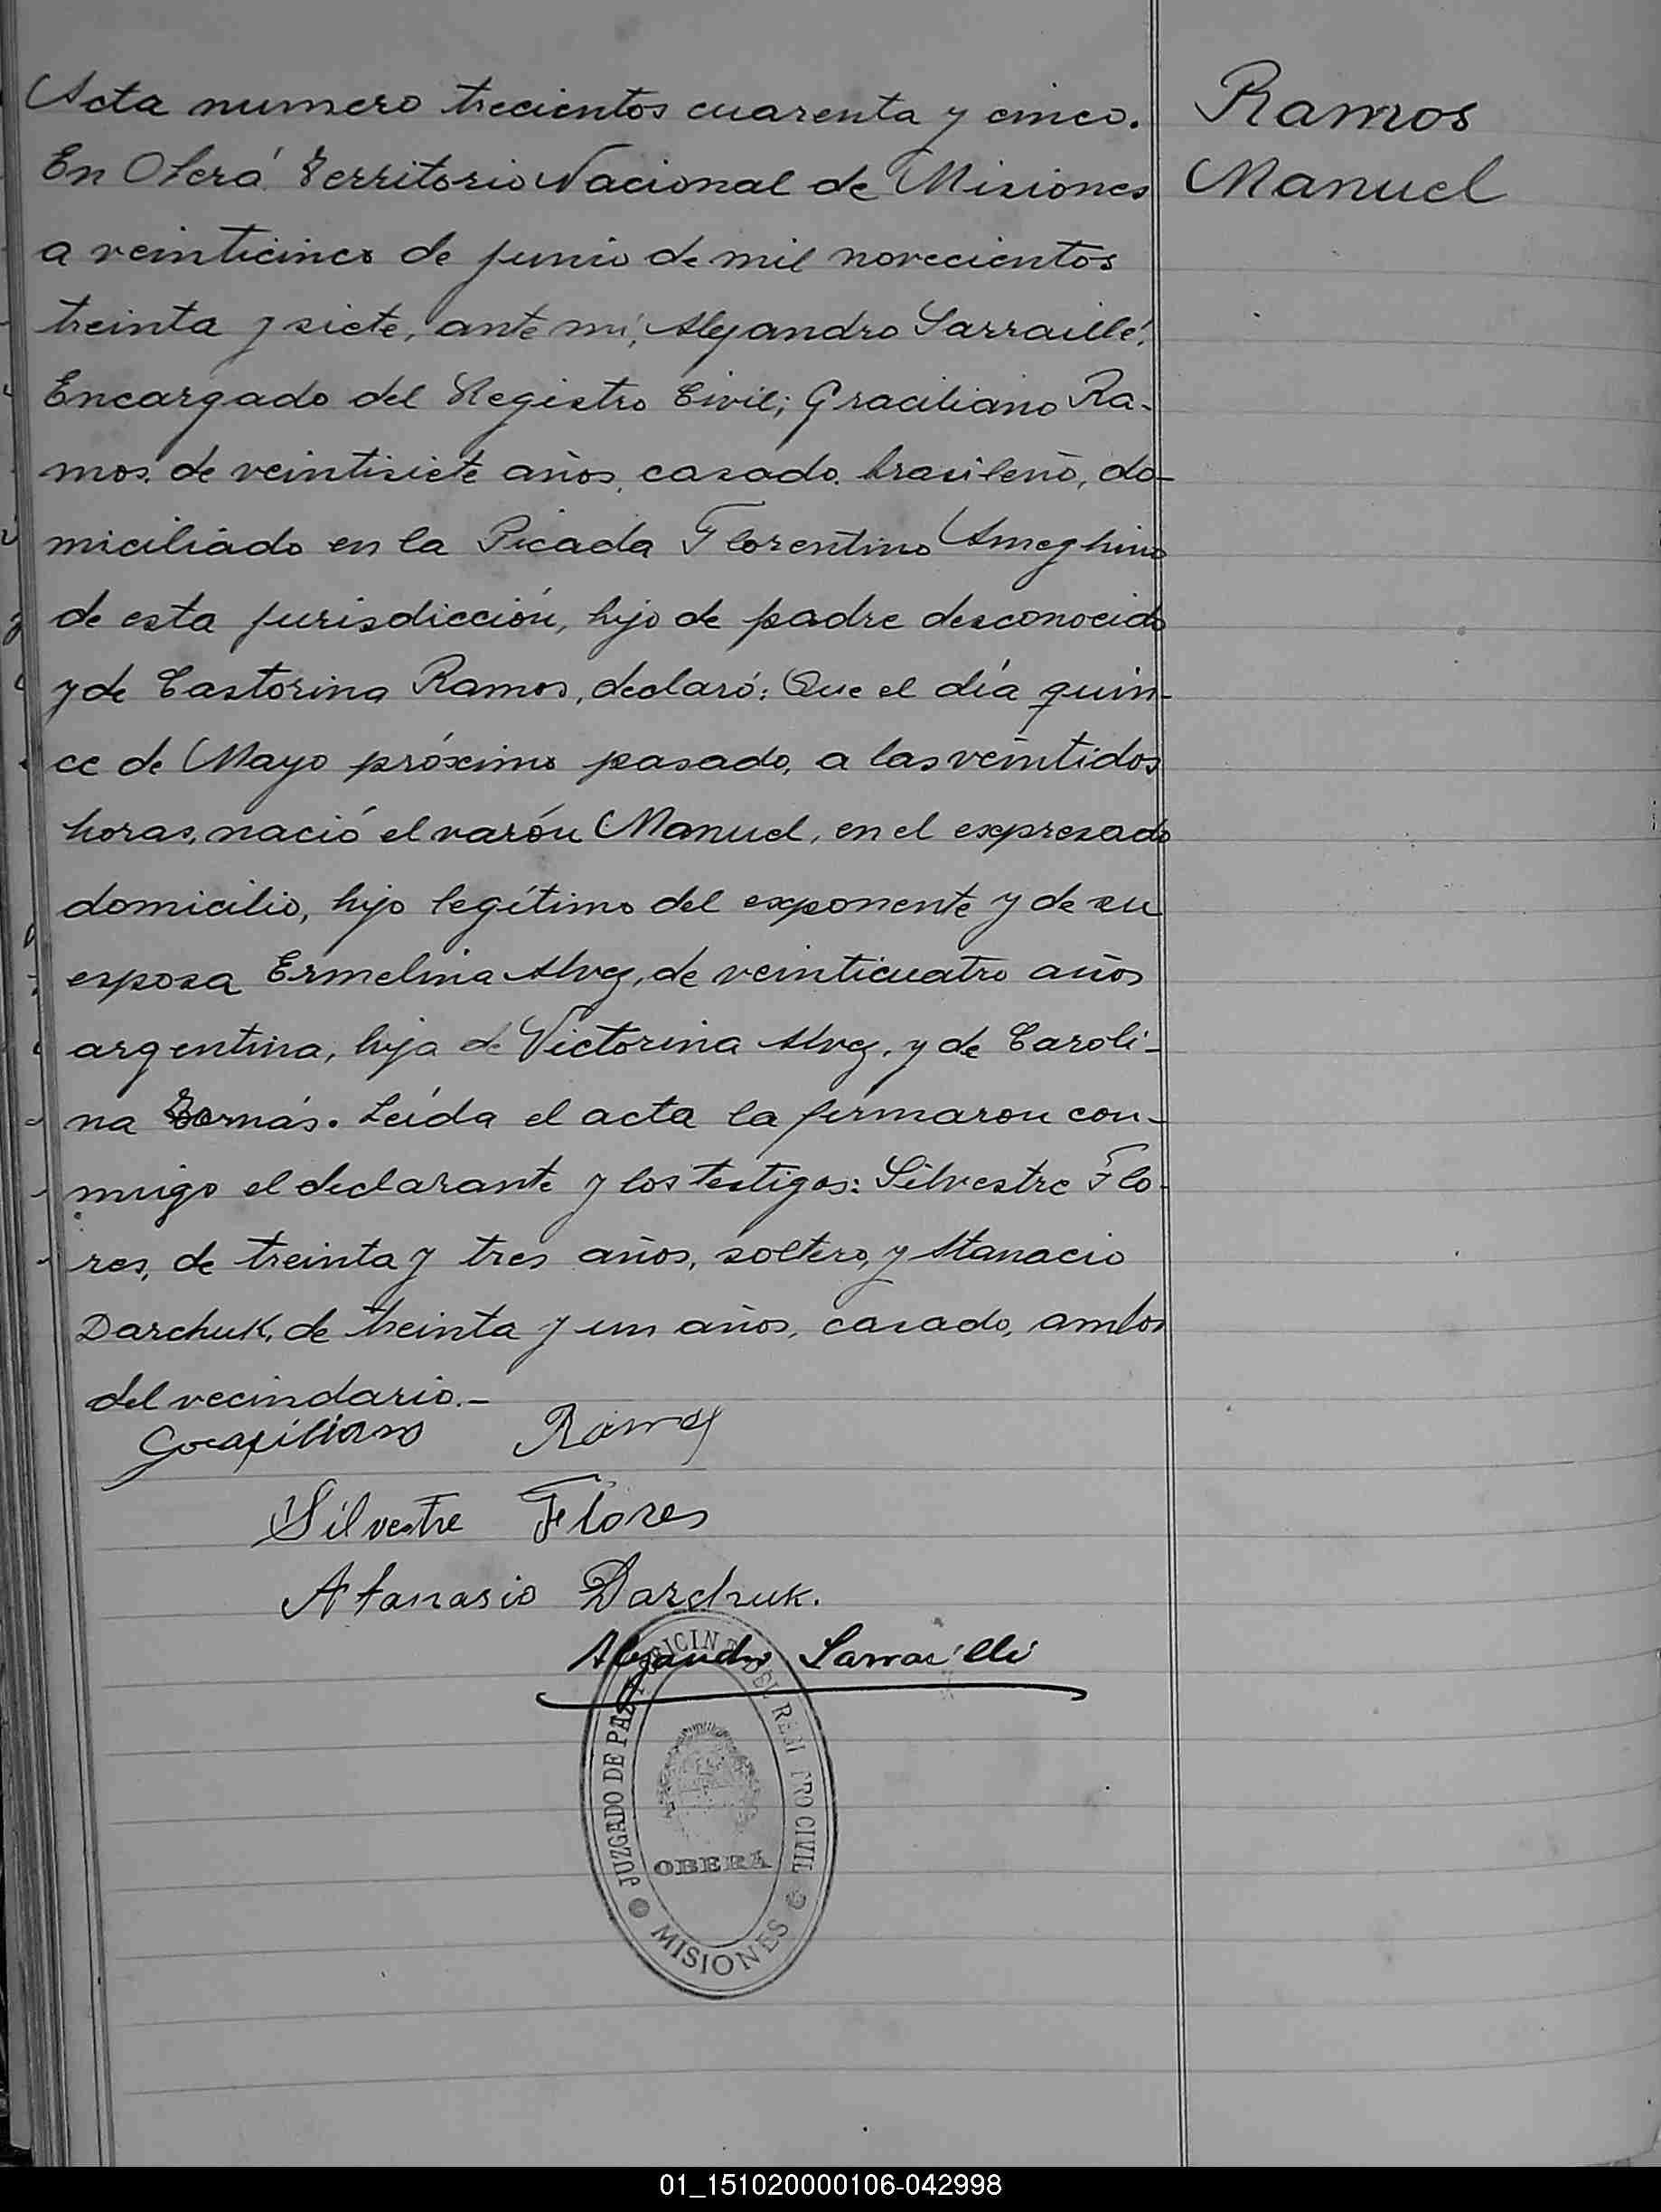 Acta numero trecientos cuarenta y cinco.
En Oberá Territorio Nacional de Misiones
a veinticinco de junio de mil novecientos
treinta y siete, ante mi, Alejandro Sarraillé,
Encargado del Registro Civil; Graciliano Ra-
mos, de veintisiete años, casado, brasileño, do-
miciliado en la Picada Florentino Ameghino
de esta jurisdicción, hijo de padre desconocido
y de Castorina Ramos, declaró: Que el día quin-
ce de Mayo próximo pasado, a las veintidos
horas, nació el varón Manuel, en el expresado
domicilio, hijo legítimo del exponente y de su
esposa Ermelina Alvez, de veinticuatro años
argentina, hija de Victorina Alvez, y de Caroli-
na . Leída el acta la firmaron con-
migo el declarante y los testigos: Silvestre Flo-
res, de treinta y tres años, soltero, y Atanacio
Darchuk, de treinta y un años, casado, ambos
del vecindario.-
Ramos
Manuel
Ramos
Silvestre Flores
Atanasio Darchuk.
Alejandro Sarraillé
JUZGADO DE PAZ DEL REGISTRO CIVIL
OBERA
MISIONES
01_151020000106-042998